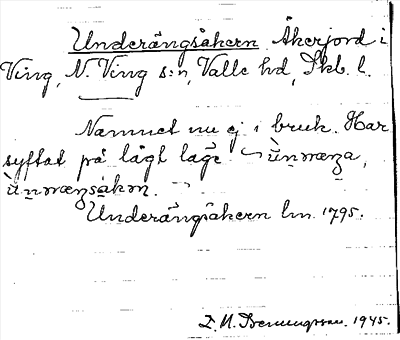 Underängsåkern Åkerjord i
Ving, N. Ving s:n, Valle hd, Skb. l.
Namnet nu ej i bruk. Har
syftat på lågt läge
Underängsåkern lm 1795.
1945.